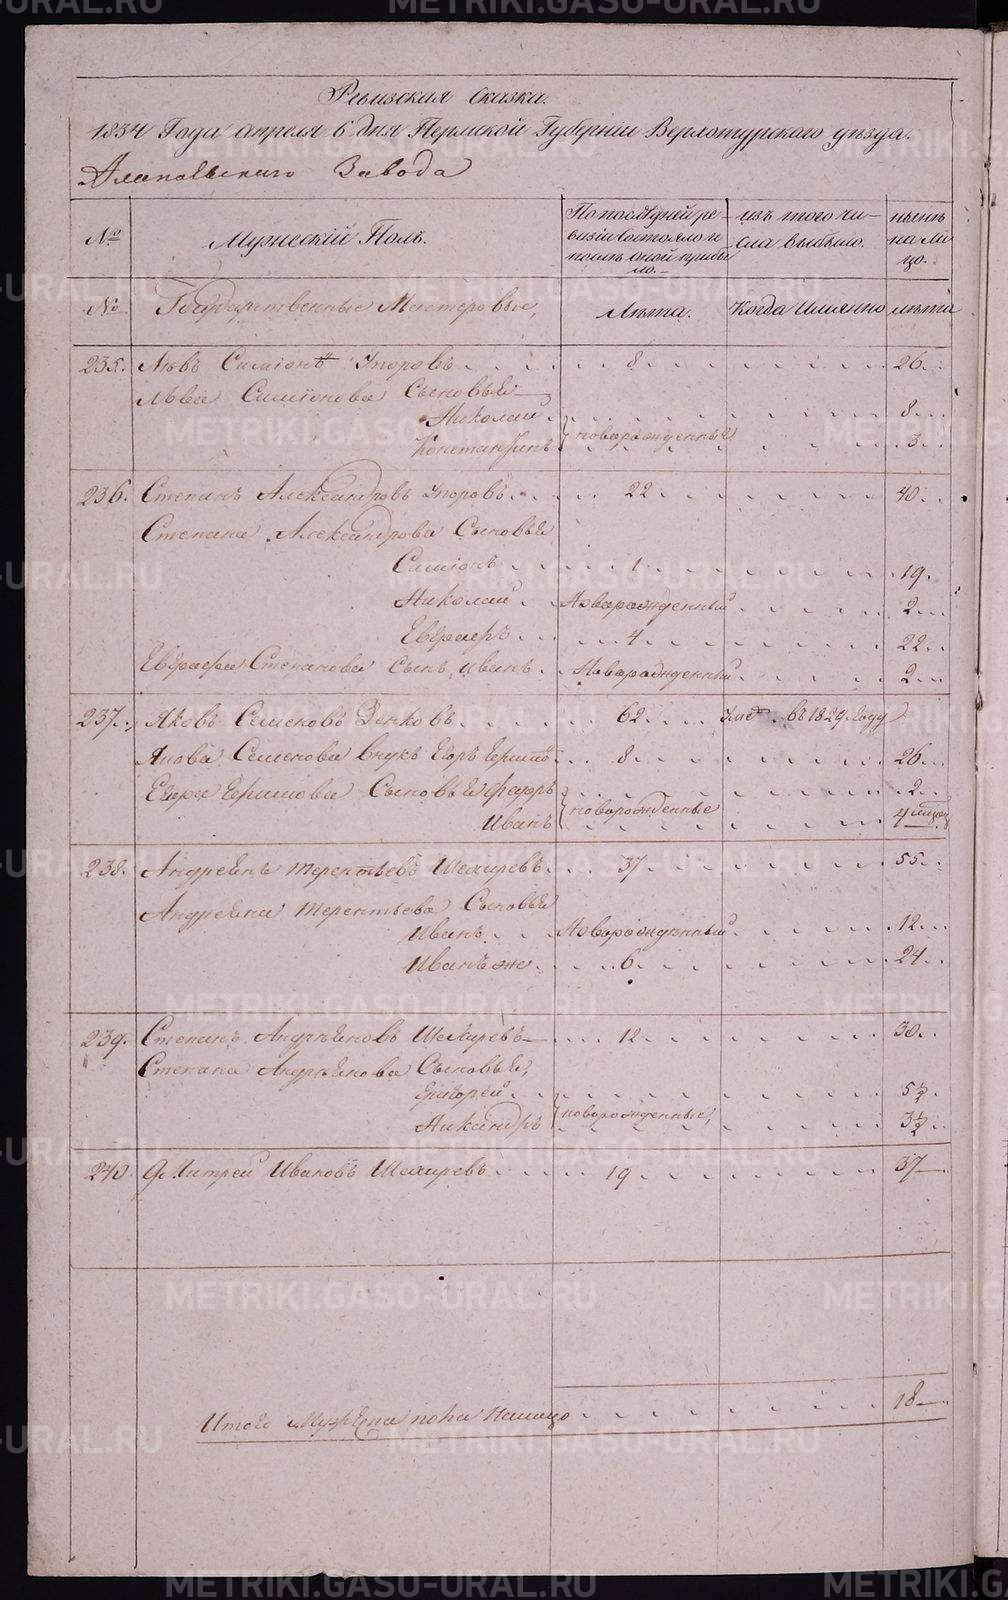 Ревизская сказка.
1834 Года апреля 6 дня Пермской Губерніи Верхотурского уѣзда.
Алапаевскаго Завода
№ Мужескій Полъ. По последней ревизіи состояло и после оной прибыло. изъ того числа выбыло. нынѣ на лицо.
№ Государственные Мастеровые, Лѣта. Когда Имянно лѣта
235. Левъ Симіонъ Упоровъ 8 26.
Льва Симіонова Сыновья
Николай новарожденные 8
Константинъ 3
236. Степанъ Александровъ Упоровъ 22 40
Степана Александрова Сыновья
Симіонъ 1 19.
Николай Новарожденный 2
Евграфъ 4 22
Евграфа Степанова Сынъ Иванъ Новарожденный 2
237. Яковъ Семеновъ Зенковъ 62 въ 1829 Году
Якова Семенова внукъ Егоръ 8 26
Егора Сыновья новорожденные 2
Иванъ 4 месец
238. Терентьевъ 37 55
Терентьева Сыновья
Иванъ Новарожденный 12
Иванъ же 6 24
239. Степанъ 12 30
Степана Сыновья,
Григорей новорожденные, 5½
Александръ 3½
240 Дмитрей Ивановъ 19 37
Итого Мужеска пола Налицо 18
METRIKI.GASO-URAL.RU